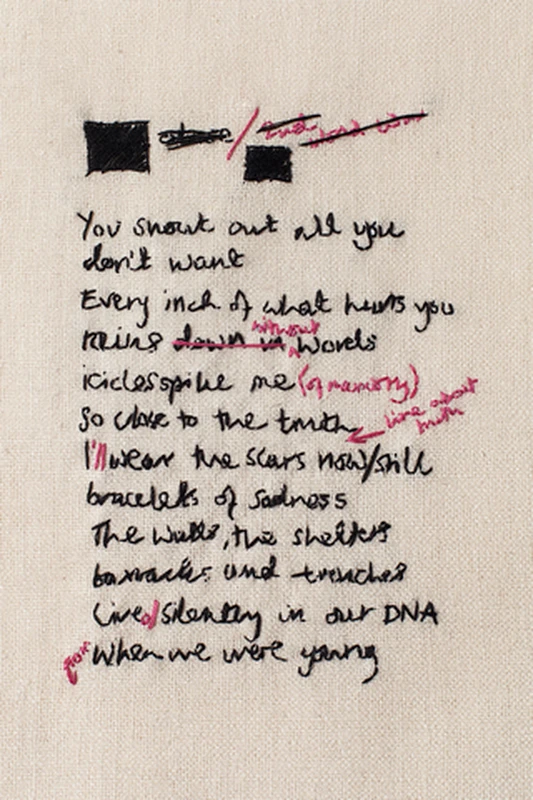 You shout out all you
don't want
Every inch of what hurts you
down in without words
icicles spike me (of memory)
So close to the truth
line about truth
I'll wear the scars now/still
bracelets of sadness
The walls, the shelters
barracks and trenches
Lived silently in our DNA
from When we were young